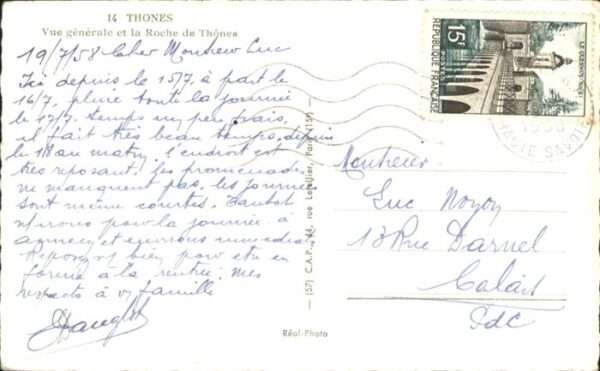 14 THONES
Vue générale et la Roche de Thônes
19/7/58 Cher Monsieur Luc
Ici depuis le 15/7, à part le
16/7, pluie toute la journée
le 17/7 temps un peu frais,
il fait très beau temps depuis
le 18 au matin. L'endroit est
très reposant. Les promenades
ne manquent pas. les journées
sont même courtes.
irons pour la journée à
Annecy et environs
bien pour être en
forme à la rentrée. Mes
respects à v/ famille
Réal-Photo
(57) C.A.P., 44, rue Letellier, Paris (15e)
15F
REPUBLIQUE FRANÇAISE
LE QUESNOY
1958
HAUTE SAVOIE
Monsieur
Luc Noyon
13 Rue Darnel
Calais
PdC